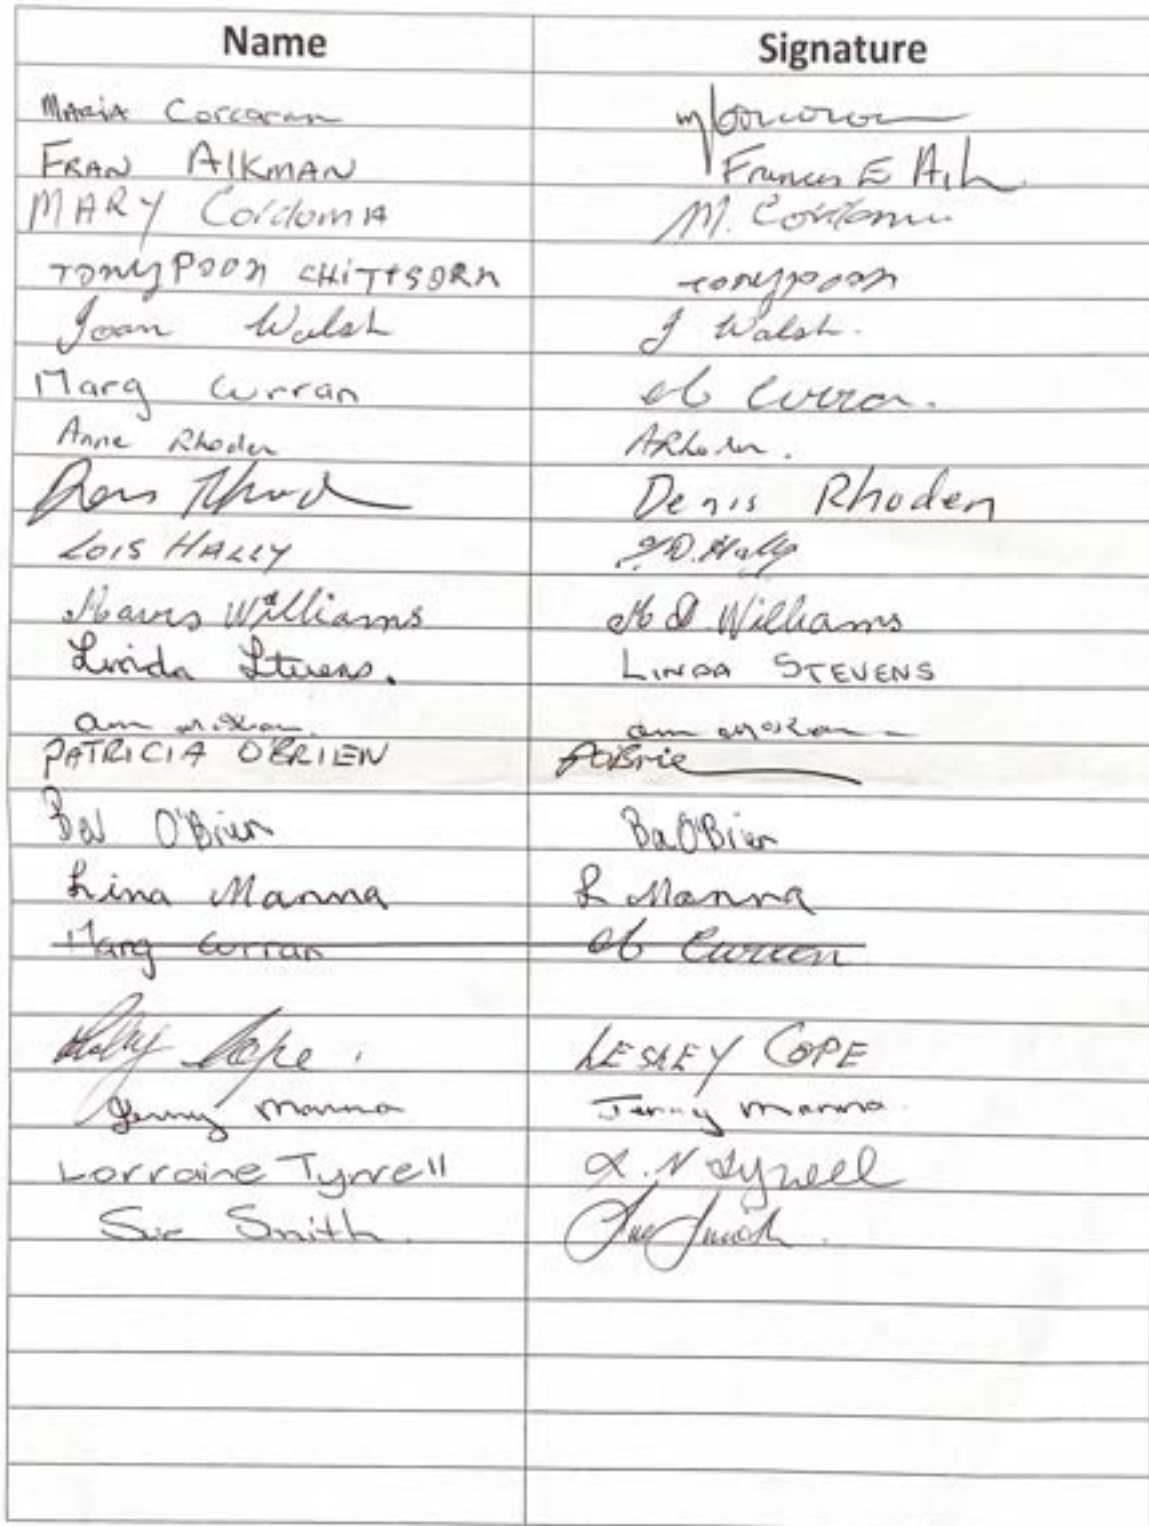 Name Signature
MARIA Corcoran
FRAN AIKMAN Frances E
MARY Cordoma M.
TONYPOON CHITTSORN tonypoon
Joan Walsh J Walsh.
Marg Curran M Curran.
Anne Rhoden ARhoden.
Denis Rhoden
LOIS HALLY L.D. Hally
Mavis Williams M D Williams
Linda Stevens. LINDA STEVENS
PATRICIA O'BRIEN POBrie
O'Brien O'Brien
Lina Manna L Manna
Marg Curran M Curran
Lesley Cope. LESLEY COPE
Jenny Manna Jenny Manna.
Lorraine Tyrrell L.N Tyrrell
Sue Smith. Sue Smith.